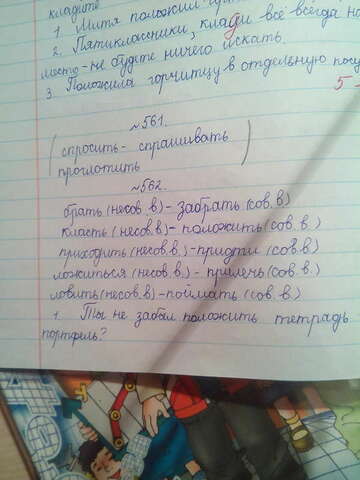 кладите
1. Митя положил
2. Пятиклассники, клади всё всегда на
место - не будете ничего искать.
3. Положила горчицу в отдельную посу
5
№561.
спросить - спрашивать
проглотить
№562.
брать (несов. в) - забрать (сов. в)
класть (несов. в) - положить (сов. в.)
приходить (несов. в.) - придти (сов. в)
ложиться (несов. в.) - прилечь (сов. в.)
ловить (несов. в) - поймать (сов. в.)
1. Ты не забыл положить тетрадь
портфель?